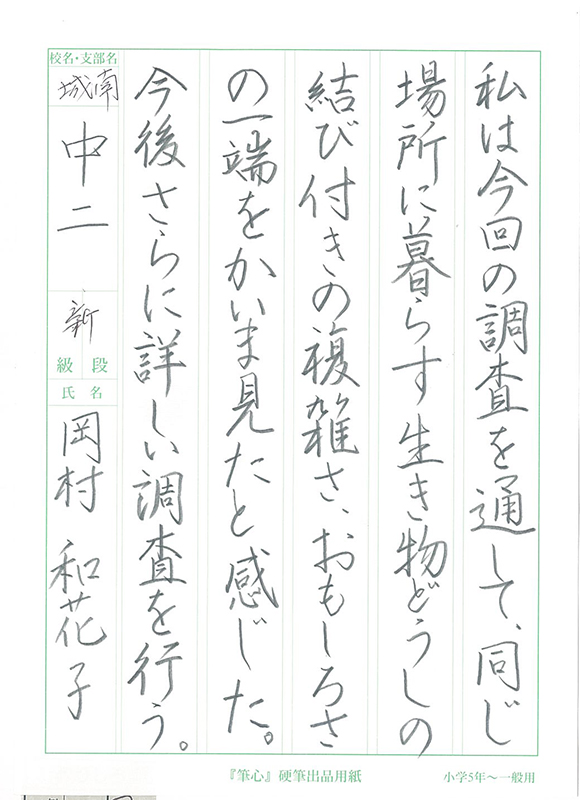 私は今回の調査を通して、同じ
場所に暮らす生き物どうしの
結び付きの複雑さ、おもしろさ
の一端をかいま見たと感じた。
今後さらに詳しい調査を行う。
校名・支部名
城南
中二
新
級 段
氏 名
岡村 和花子
『筆心』硬筆出品用紙
小学5年～一般用